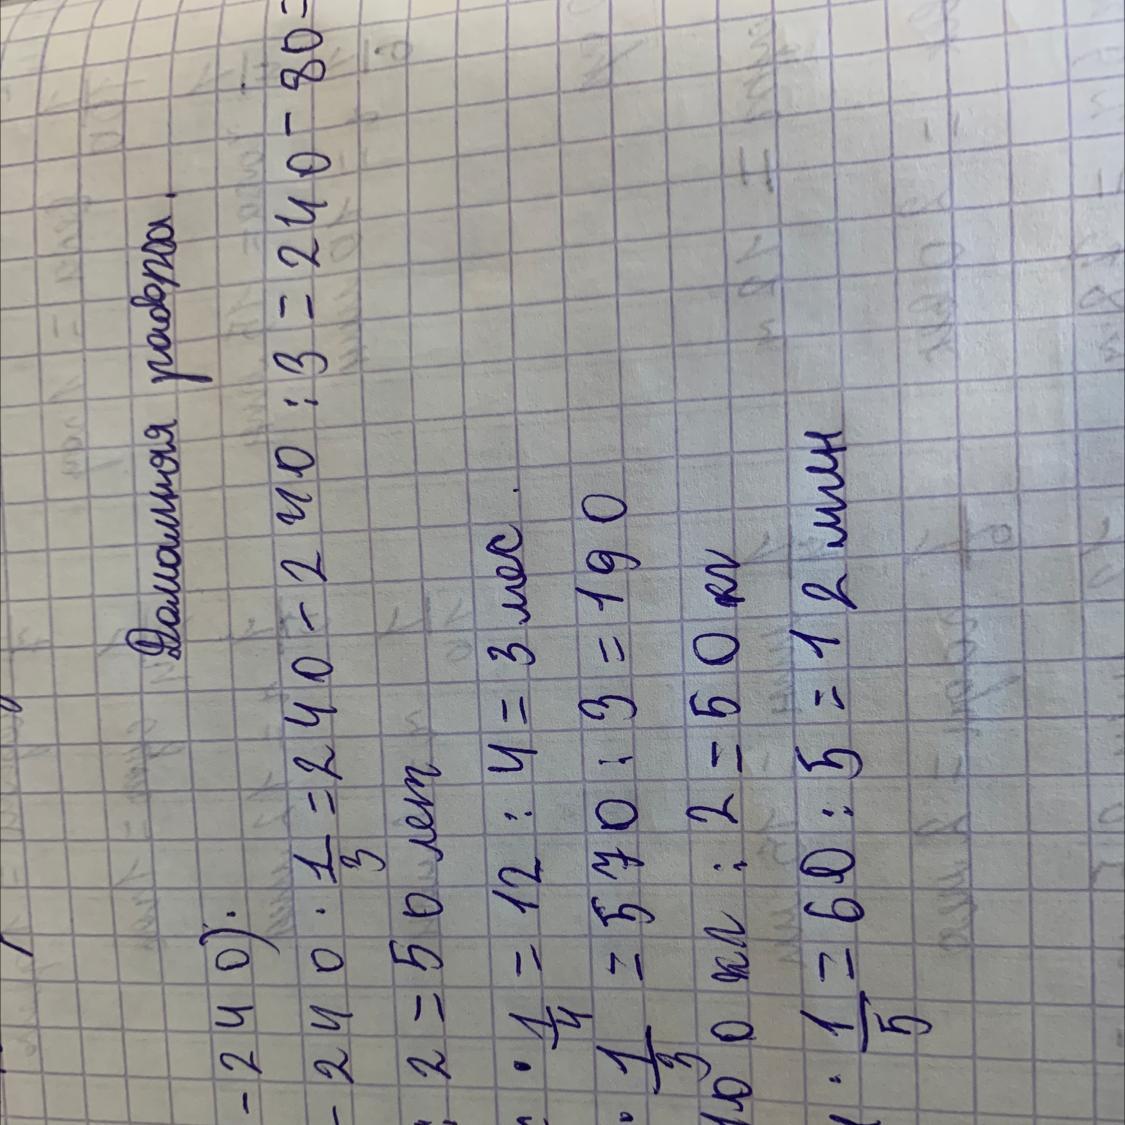 Домашняя работа.
- 240).
- 240 · 1/3 = 240 - 240 : 3 = 240 - 80 =
: 2 = 50 лет
· 1/4 = 12 : 4 = 3 мес.
· 1/3 = 570 : 3 = 190
100 кг : 2 = 50 кг
· 1/5 = 60 : 5 = 12 мин